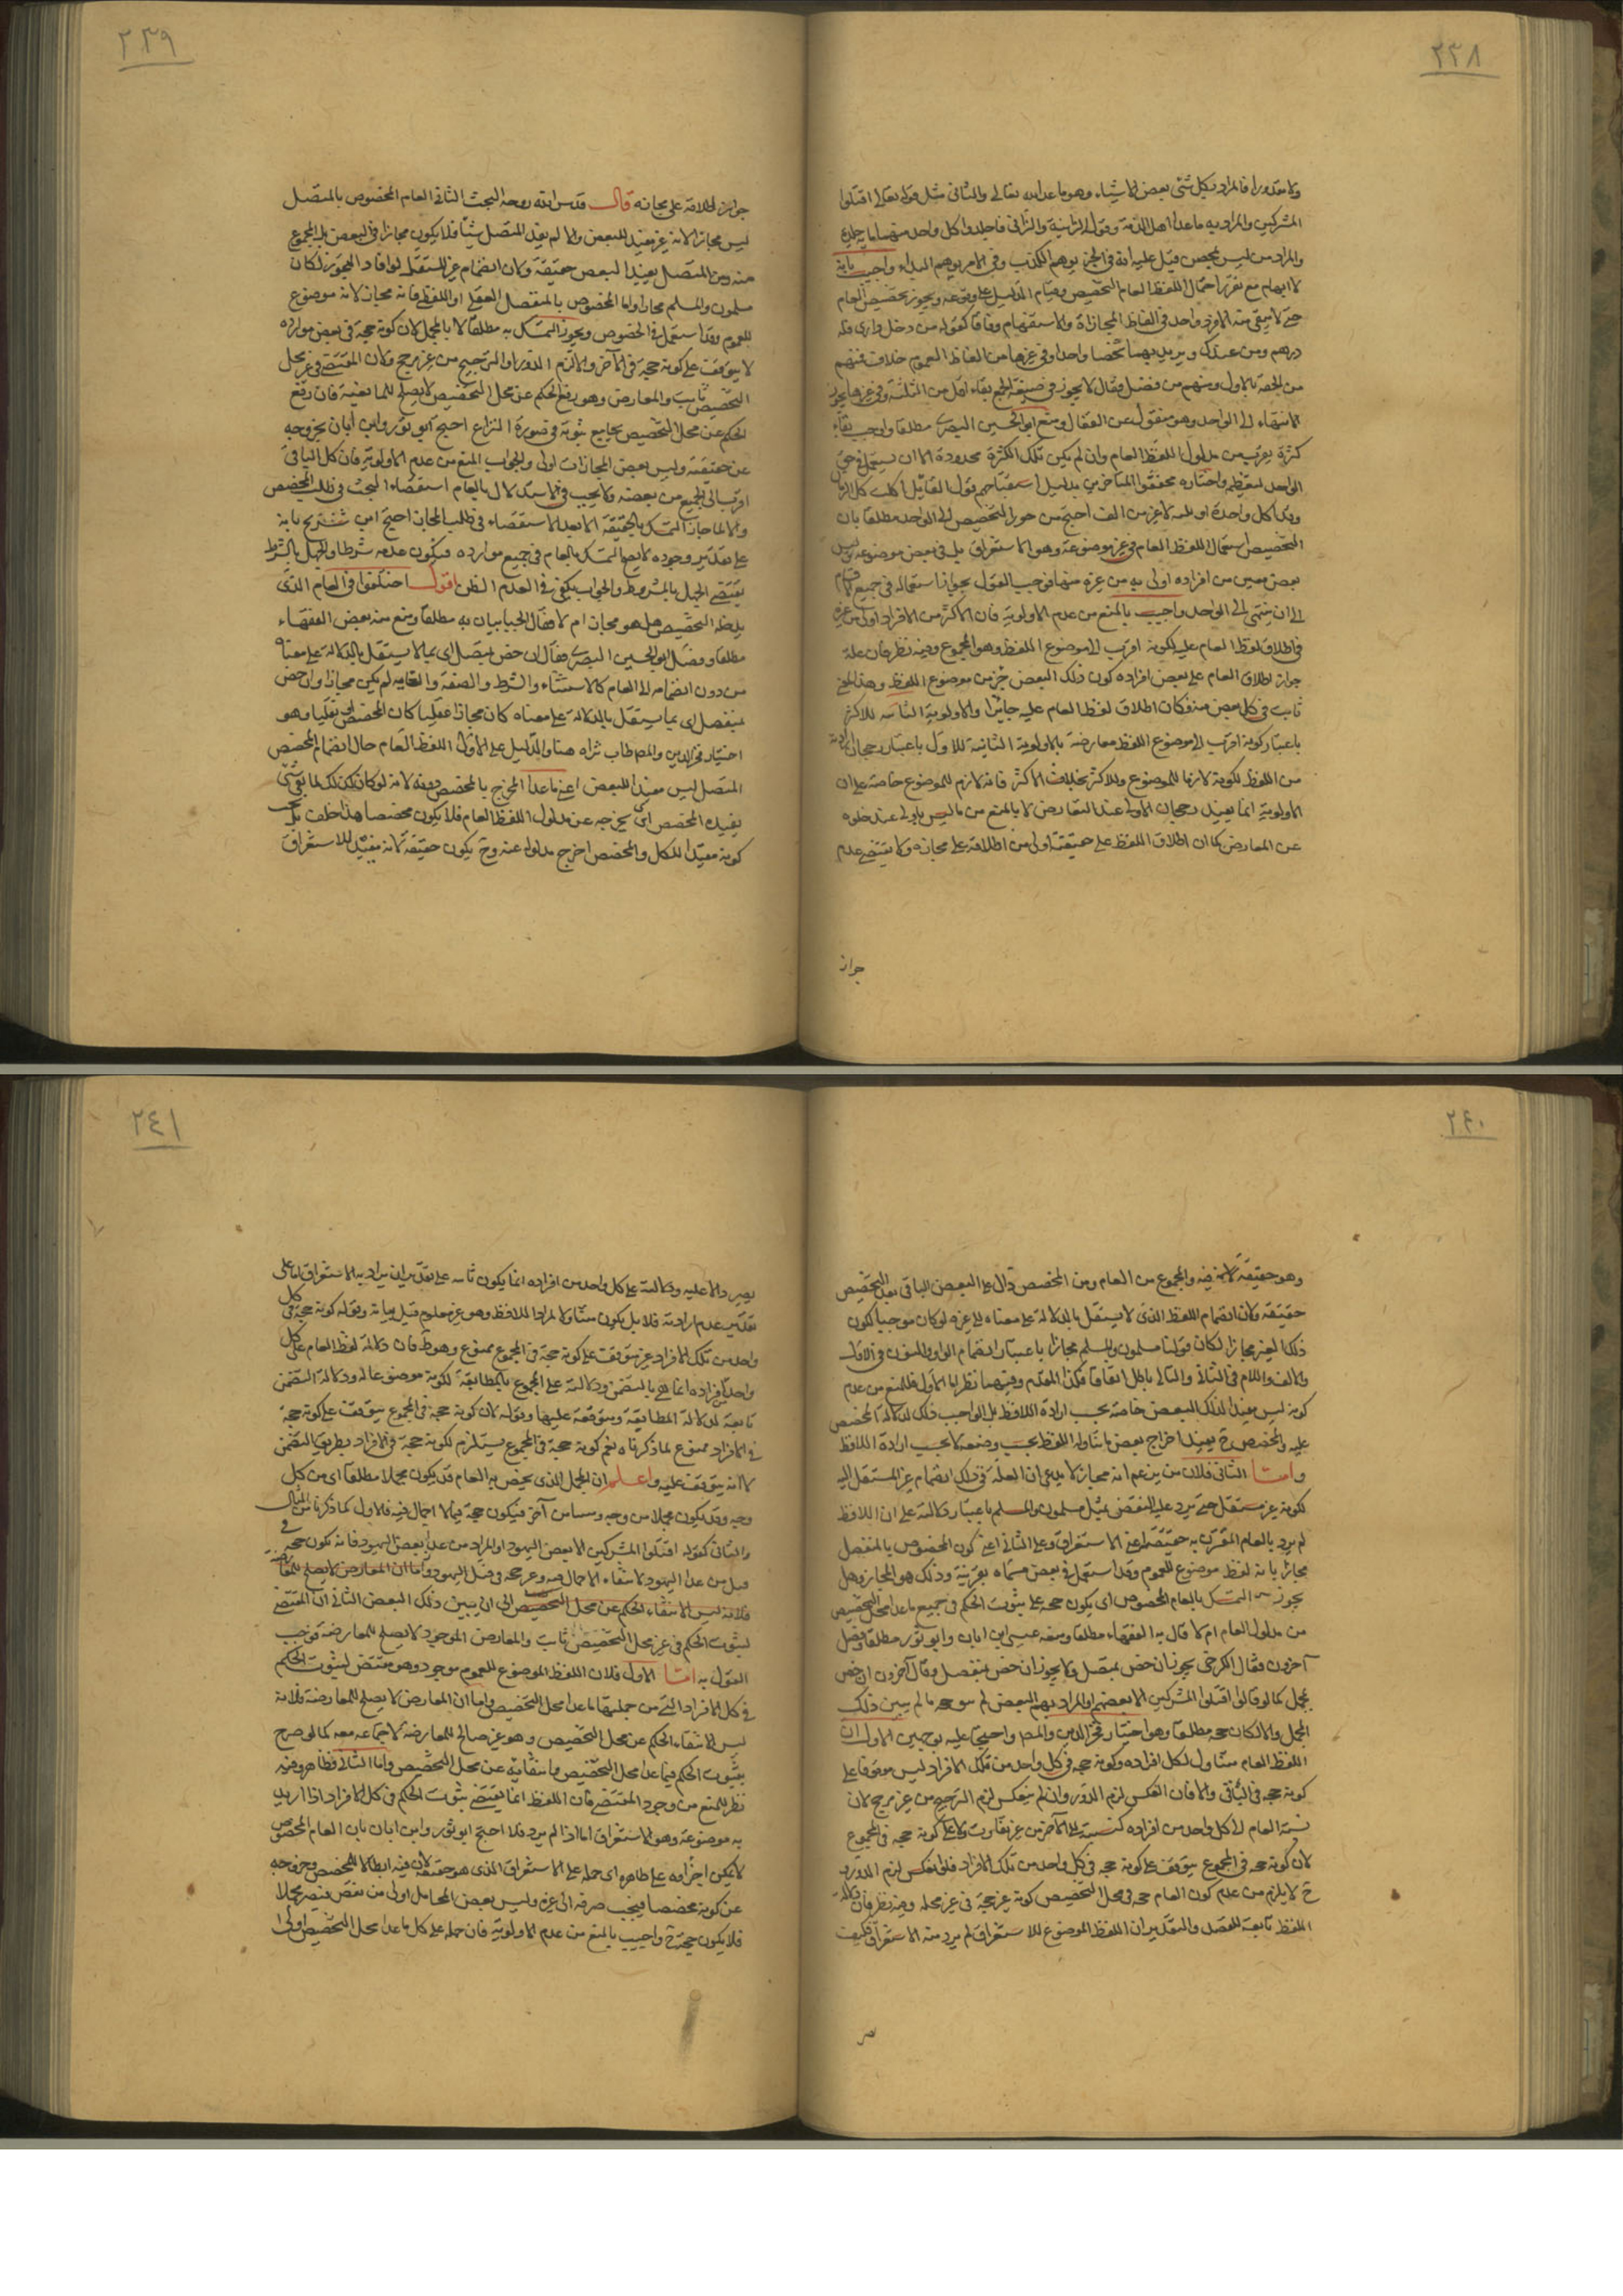 ٢٣٨
ولا مقدورا فالمراد بكل شئ بعض الاشياء وهو ما عدا الله تعالى والثانى مثل قوله تعالى اقتلوا
المشركين والمراد به ما عدا اهل الذمة وقوله الزانية والزانى فاجلدوا كل واحد منهما مائة جلدة
والمراد من ليس بمحصن قيل عليه انه فى الخبر يوهم الكذب وفى الامر يوهم البداء واجيب بانه
لا ايهام مع تقرر احتمال اللفظ العام التخصيص وقيام الدليل على وقوعه ويجوز تخصيص العام
حتى لا يبقى منه الا فرد واحد فى الفاظ المجازاة والاستفهام وفاقا كقوله من دخل دارى فله
درهم ومن عندك ويريد بهما شخصا واحدا وفى غيرها من الفاظ العموم خلاف فمنهم
من الحقه بالاول ومنهم من فصل فقال لا يجوز فى صيغة الجمع بقاء اقل من الثلثة وفى غيرها يجوز
الانتهاء الى الواحد وهو منقول عن القفال ومنع ابو الحسين البصرى مطلقا واوجب بقاء
كثرة يقرب من مدلول اللفظ العام وان لم يكن تلك الكثرة محدودة الا ان يستعمل فى حق
الواحد لتعظيم واختاره محققوا المتاخرين بدليل استقباحهم قول القائل اكلت كل الرمان
وقد اكل واحدة او ثلثة لا غير من الف احتج من جوز التخصيص الى الواحد مطلقا بان
التخصيص استعمال اللفظ العام فى غير موضوعه وهو الاستغراق بل فى بعض موضوعه وليس
بعض معين من افراده اولى به من غيره منها فوجب القول بجواز استعماله فى جميع الاقسام
الى ان ينتهى الى الواحد واجيب بالمنع من عدم الاولوية فان الاكثر من الافراد اولى من غيره
فى اطلاق لفظ العام عليه لكونه اقرب الى موضوع اللفظ وهو المجموع وفيه نظر فان علة
جواز اطلاق العام على بعض افراده كون ذلك البعض جزء من موضوع اللفظ وهذا المعنى
ثابت فى كل بعض منه فكان اطلاق لفظ العام عليه جائزا والاولوية الثابتة للاكثر
باعتبار كونه اقرب الى موضوع اللفظ معارضة بالاولوية الثانية للاول باعتبار رجحان ارادته
من اللفظ لكونه لازما للموضوع وللاكثر بخلاف الاكثر فانه لازم للموضوع خاصة على ان
الاولوية انما يفيد رجحان الاولى عند التعارض لا بالمنع من ما ليس باولى عند خلوه
عن المعارض كما ان اطلاق اللفظ على حقيقته اولى من اطلاقه على مجازه ولا يقتضى عدم
جواز
٢٣٩
جواز اطلاقه على مجازه قال قدس الله روحه البحث الثانى العام المخصوص بالمتصل
ليس مجازا لانه غير مفيد للبعض والا لم يفد المتصل شيئا فلا يكون مجازا فى البعض بل المجموع
منه ومن المتصل يفيد البعض حقيقة ولان انضمام غير المستقل لو افاد التجوز لكان
مسلمون والمسلم مجازا واما المخصوص بالمنفصل العقلى او اللفظى فانه مجاز لانه موضوع
للعموم وقد استعمل فى الخصوص ويجوز التمسك به مطلقا لا بالمجمل لان كونه حجة فى بعض موارده
لا يتوقف على كونه حجة فى الآخر والا لزم الدور او الترجيح من غير مرجح ولان المقتضى فى غير محل
التخصيص ثابت والمعارض وهو رفع الحكم عن محل التخصيص لا يصلح للمانعية فان رفع
الحكم عن محل التخصيص يجامع ثبوته فى صورة النزاع احتج ابو ثور وابن ابان بخروجه
عن حقيقته وليس بعض المجازات اولى والجواب المنع من عدم الاولوية فان كل الباقى
اقرب الى الجميع من بعضه ولا يجب فى الاستدلال بالعام استقصاء البحث فى طلب المخصص
والا لما جاز التمسك بالحقيقة الا بعد الاستقصاء فى طلب المجاز احتج ابن شريح بانه
على تقدير وجوده لا يصح التمسك بالعام فى جميع موارده فيكون عدمه شرطا والجهل بالشرط
يقتضى الجهل بالمشروط والجواب يكفى فى العدم الظن اقول اختلفوا فى العام الذى
يلحقه التخصيص هل هو مجاز ام لا فقال الجبائيان به مطلقا ومنع منه بعض الفقهاء
مطلقا وفصل ابو الحسين البصرى فقال ان خص بمتصل اى بما لا يستقل بالدلالة على معناه
من دون انضمامه الى العام كالاستثناء والشرط والصفة والغاية لم يكن مجازا وان خص
بمنفصل اى بما يستقل بالدلالة على معناه كان مجازا عقليا كان المخصص او نقليا وهو
اختيار فخر الدين والمص طاب ثراه هنا والدليل على الاول ان اللفظ العام حال انضمام المخصص
المتصل ليس مفيدا للبعض اعنى ما عدا المخرج بالمخصص وحده لانه لو كان كذلك لما بقى شئ
يفيده المخصص اى يخرجه عن مدلول اللفظ العام فلا يكون مخصصا هذا خلف بل يجب
كونه مفيدا للكل والمخصص اخرج مدلوله عنه وح يكون حقيقة لانه مفيد للاستغراق
٢٤٠
وهو حقيقة فيه والمجموع من العام ومن المخصص دال على البعض الباقى بعد التخصيص
حقيقة ولان انضمام اللفظ الذى لا يستقل بالدلالة على معناه الى غيره لو كان موجبا لكون
ذلك الغير مجازا لكان قولنا مسلمون والمسلم مجازا باعتبار انضمام الواو والنون فى الاول
والالف واللام فى الثانى والتالى باطل اتفاقا فكذا المقدم وفيهما نظر اما الاول فللمنع من عدم
كونه ليس مفيدا لذلك البعض خاصة بحسب ارادة اللافظ بل الواجب ذلك لدلالة المخصص
عليه والمخصص ح يفيد اخراج بعض ما تناوله اللفظ بحسب وضعه لا بحسب ارادة اللافظ
واما الثانى فلان من يزعم انه مجاز لا يدعى ان العلة فى ذلك انضمام غير المستقل اليه
لكونه غير مستقل حتى يرد عليه النقض بمثل مسلمون والمسلم باعتبار دلالته على ان اللافظ
لم يرد بالعام المقترن به حقيقته اعنى الاستغراق وعلى الثانى اعنى كون المخصوص بالمنفصل
مجازا بانه لفظ موضوع للعموم وقد استعمل فى بعض مسماه بقرينة وذلك هو المجاز وهل
يجوز التمسك بالعام المخصوص اى يكون حجة على ثبوت الحكم فى جميع ما عدا محل التخصيص
من مدلول العام ام لا قال به الفقهاء مطلقا ومنعه عيسى ابن ابان وابو ثور مطلقا وفصل
آخرون فقال الكرخى يجوز ان خص بمتصل ولا يجوز ان خص بمنفصل وقال آخرون ان خص
بمجمل كما لو قال اقتلوا المشركين الا بعضهم او المراد بهم البعض لم ما لم يبين ذلك
المجمل والا لكان حجة مطلقا وهو اختيار فخر الدين والمص واحتجا عليه بوجهين الاول ان
اللفظ العام متناول لكل افراده وكونه حجة فى كل واحد من تلك الافراد ليس موقوفا على
كونه حجة فى الباقى والا فان انعكس لزم الدور وان لم ينعكس لزم الترجيح من غير مرجح لان
نسبة العام الى كل واحد من افراده كنسبته الى الآخر من غير تفاوت ولا على كونه حجة فى المجموع
لان كونه حجة فى المجموع يتوقف على كونه حجة فى كل واحد من تلك الافراد فلو انعكس لزم الدور
ح لا يلزم من عدم كون العام حجة فى محل التخصيص كونه غير حجة فى غير محله وفيه نظر فان دلالة
اللفظ تابعة للقصد والتقدير ان اللفظ الموضوع للاستغراق لم يرد منه الاستغراق فكيف
٢٤١
يصير دالا عليه ودلالته على كل واحد من افراده انما يكون على تقدير ان يراد به الاستغراق اما على
تقدير عدم ارادته فلا بل يكون متناولا لمراد اللافظ وهو غير معلوم قبل بيانه وقوله كونه حجة فى كل
واحد من تلك الافراد غير متوقف على كونه حجة فى المجموع ممنوع وهو ظ فان دلالة لفظ العام على كل
واحد من افراده انما هى بالتضمن ودلالته على المجموع بالمطابقة لكونه موضوعا له ودلالة التضمن
تابعة لدلالة المطابقة ومتوقفة عليها وقوله لان كونه حجة فى المجموع يتوقف على كونه حجة
فى الافراد ممنوع لما ذكرناه نعم كونه حجة فى المجموع يستلزم لكونه حجة فى الافراد بطريق التضمن
لا انه يتوقف عليه واعلم ان المجمل الذى يخص به العام قد يكون مجملا مطلقا اى من كل
وجه وقد يكون مجملا من وجه ومبينا من آخر فيكون حجة فيما لا اجمال فيه فالاول كما ذكرنا من المثال
والثانى كقوله اقتلوا المشركين الا بعض اليهود او المراد من عدا بعض اليهود فانه يكون حجة فى
قتل من عدا اليهود لانتفاء الاجمال فيه وغير حجة فى قتل اليهود واما ان المعارض لا يصلح للمعارضة
فلانه ليس الا انتفاء الحكم عن محل التخصيص الى ان يبين ذلك البعض الثانى ان المقتضى
لثبوت الحكم فى غير محل التخصيص ثابت والمعارض الموجود لا يصلح للمعارضة فوجب
القول به اما الاول فلان اللفظ الموضوع للعموم موجود وهو مقتض لثبوت الحكم
فى كل الافراد التى من جملتها ما عدا محل التخصيص واما ان المعارض لا يصلح للمعارضة فلانه
ليس الا انتفاء الحكم عن محل التخصيص وهو غير صالح للمعارضة لاجتماعه معه كما لو صرح
بثبوت الحكم فيما عدا محل التخصيص وانتفائه عن محل التخصيص واما الثانى فظاهر وفيه
نظر للمنع من وجود المقتضى فان اللفظ انما يقتضى ثبوت الحكم فى كل الافراد اذا اريد
به موضوعه وهو الاستغراق اما اذا لم يرد فلا احتج ابو ثور وابن ابان بان العام المخصوص
لا يمكن اجراؤه على ظاهره اى حمله على الاستغراق الذى هو حقيقته لان فيه ابطالا للمخصص وخروجه
عن كونه مخصصا فيجب صرفه الى غيره وليس بعض المحامل اولى من بعض فيصير مجملا
فلا يكون حجة ح واجيب بالمنع من عدم الاولوية فان حمله على كل ما عدا محل التخصيص اولى